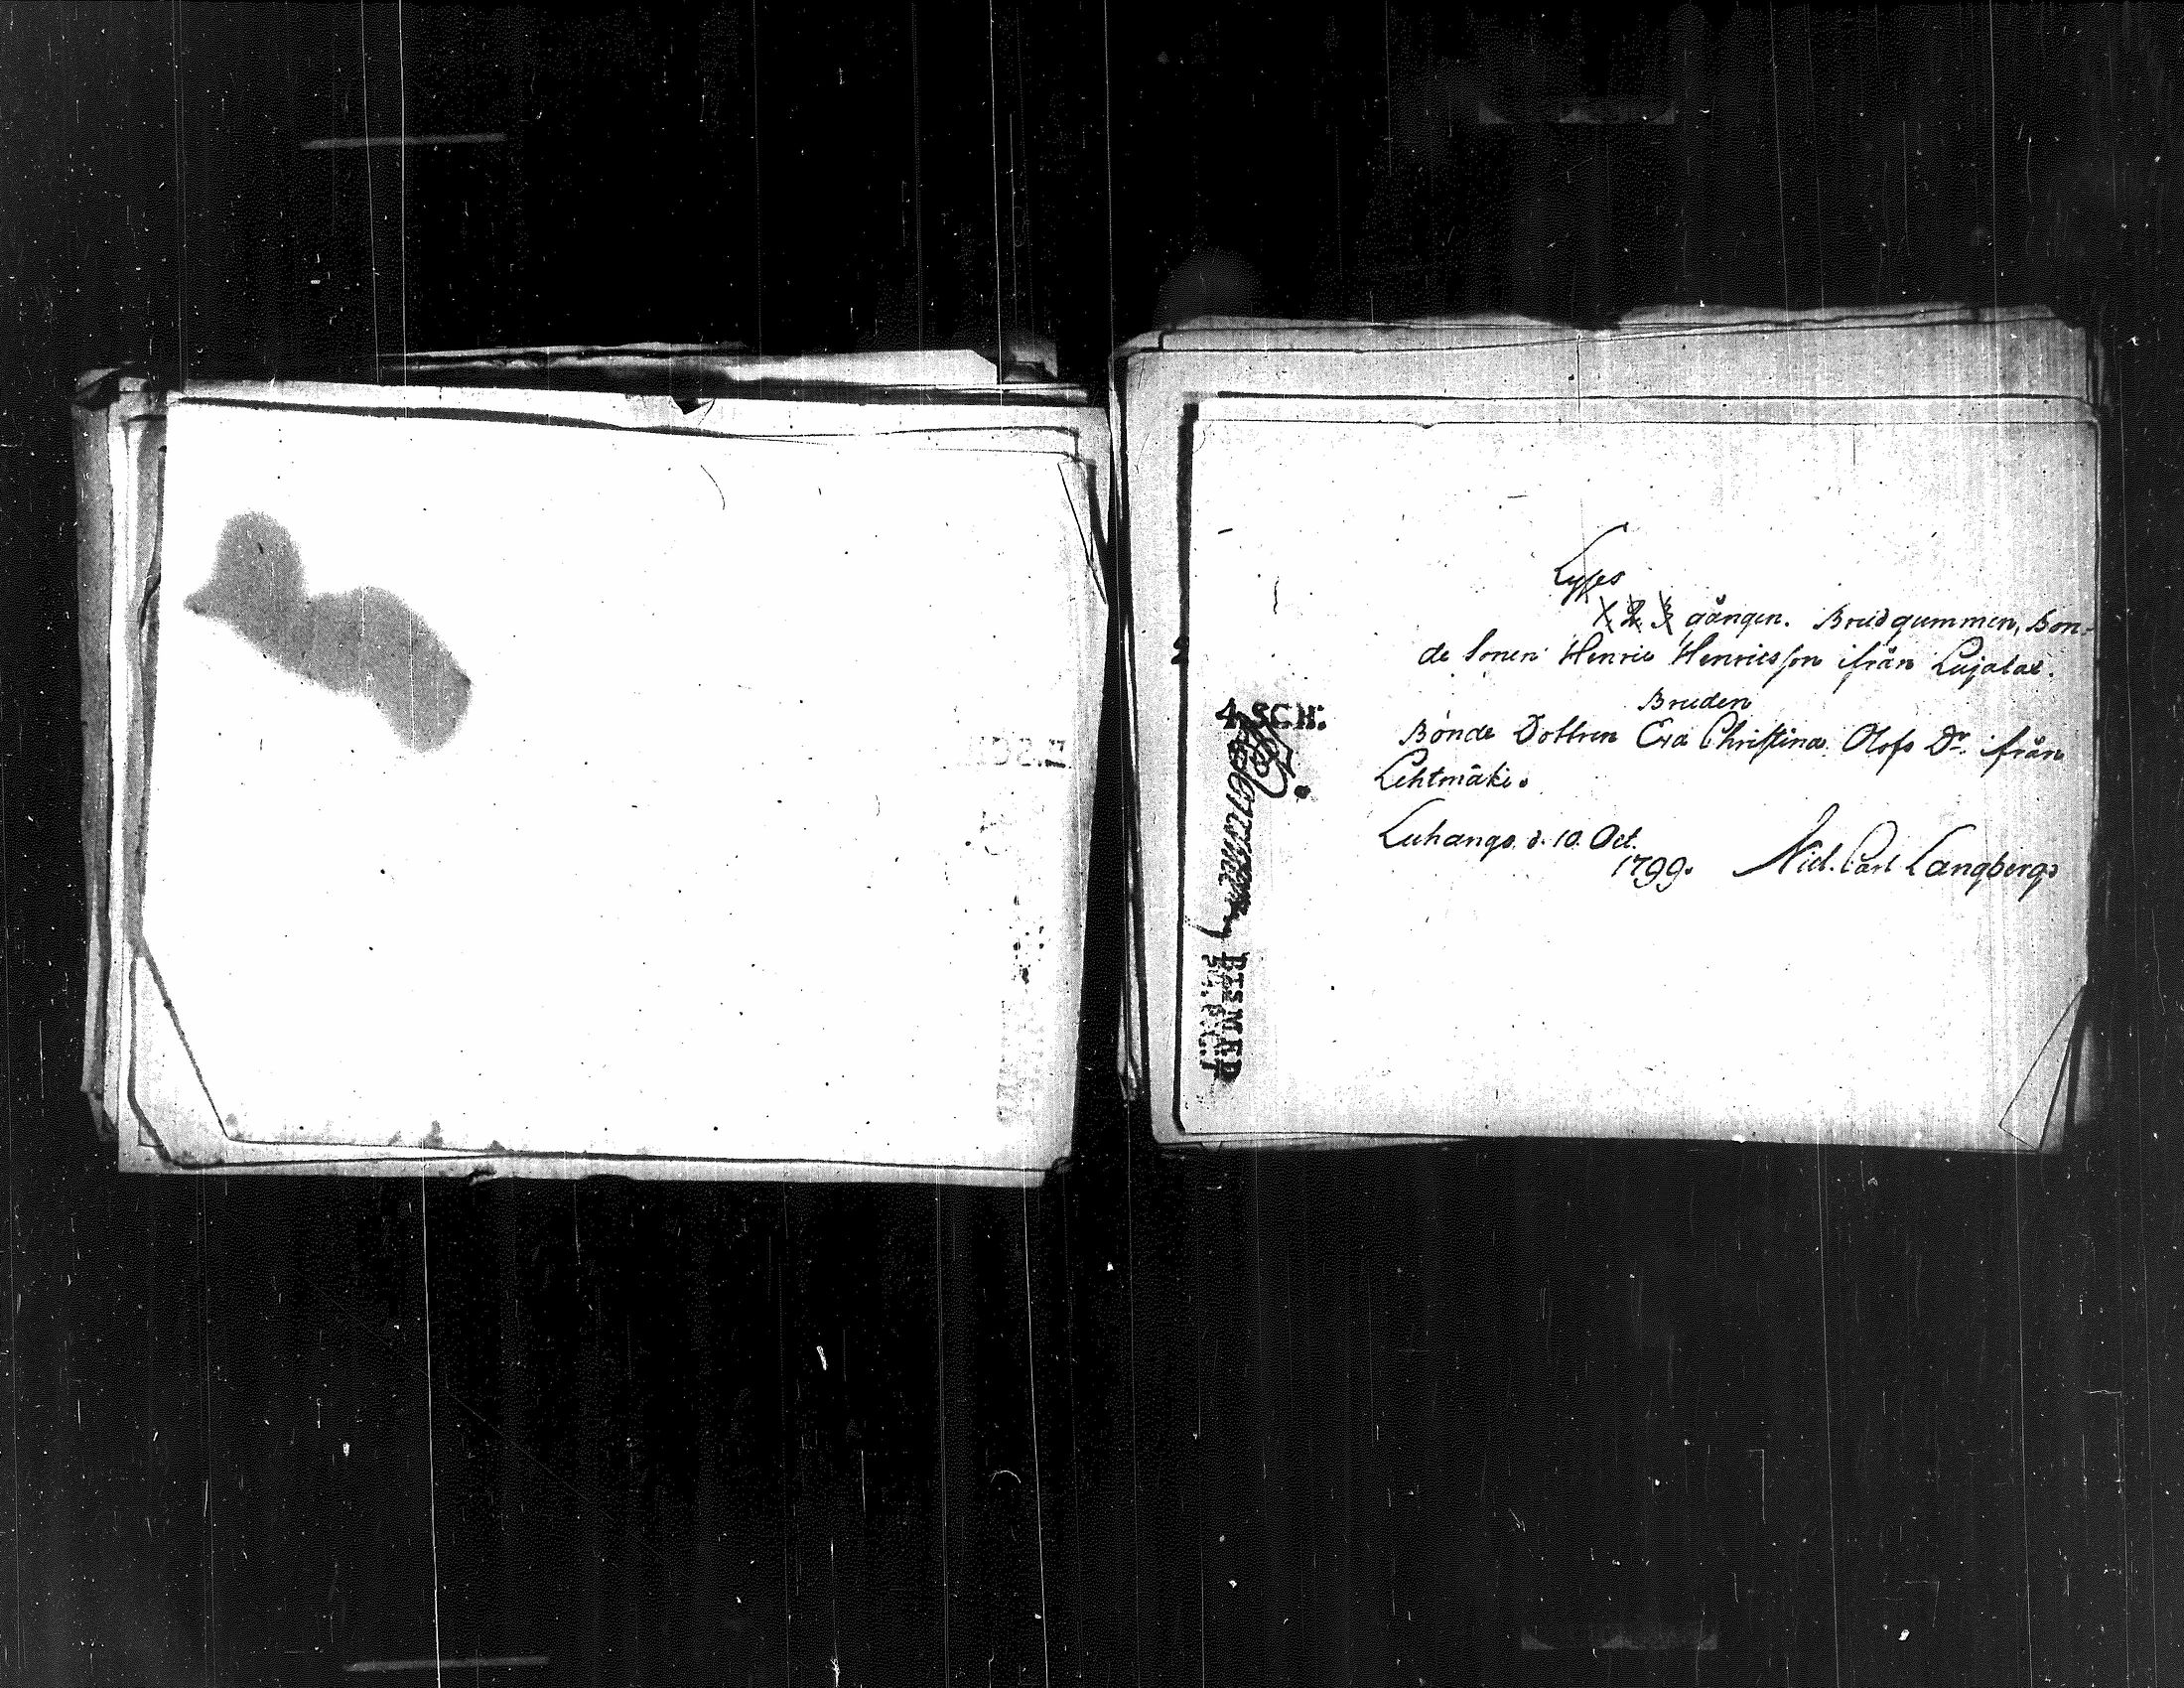 Lyses
1. 2. 3 gången. Brudgummen, Bon-
de Sonen Henric Henricsson ifrån Lujalax.
Bruden
Bonde Dottren Eva Christina Olofs Dr. ifrån
Lehtmäki.
Luhango d. 10. Oct.
1799. Nid. Carl Langberg
4. SCH: